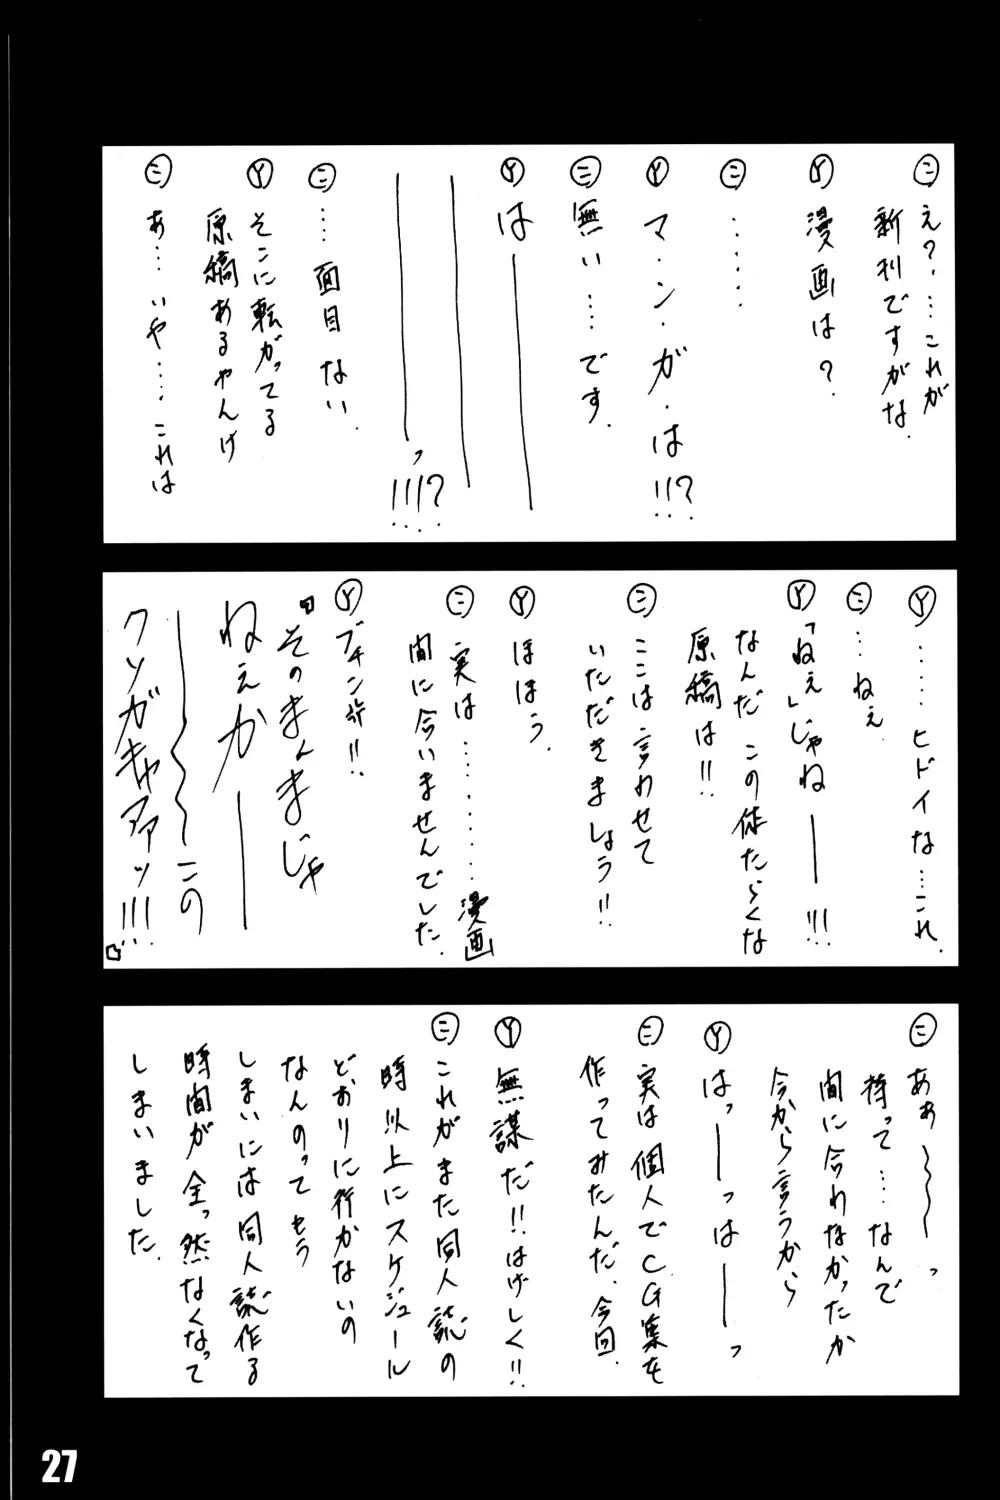 ㋥ え?…これが
新刊ですがな.
Ⓨ 漫画は?
㋥ ……
Ⓨ マ・ン・ガ・は!!?
㋥ 無い…です.
Ⓨ は───
───
───っ!!!?
㋥ …面目ない.
Ⓨ そこに転がってる
原稿あるやんけ
㋥ あ…いや…これは
Ⓨ ……ヒドイな…これ.
㋥ …ねぇ
Ⓨ 「ねぇ」じゃね──!!!
なんだこの体たらくな
原稿は!!
㋥ ここは言わせて
いただきましょう!!
Ⓨ ほほう.
㋥ 実は………漫画
間に合いませんでした.
Ⓨ ブチン許!!
『そのまんまじゃ
ねぇか───
─〜〜〜この
クソガキャアァッ!!!』
㋥ あぁ〜〜〜っ
待って…なんで
間に合わなかったか
今から言うから
Ⓨ はっ──っは──っ
㋥ 実は個人でCG集を
作ってみたんだ、今回.
Ⓨ 無謀だ!!はげしく!!
㋥ これがまた同人誌の
時以上にスケジュール
どおりに行かないの
なんのってもう
しまいには同人誌作る
時間が全っ然なくなって
しまいました.
27